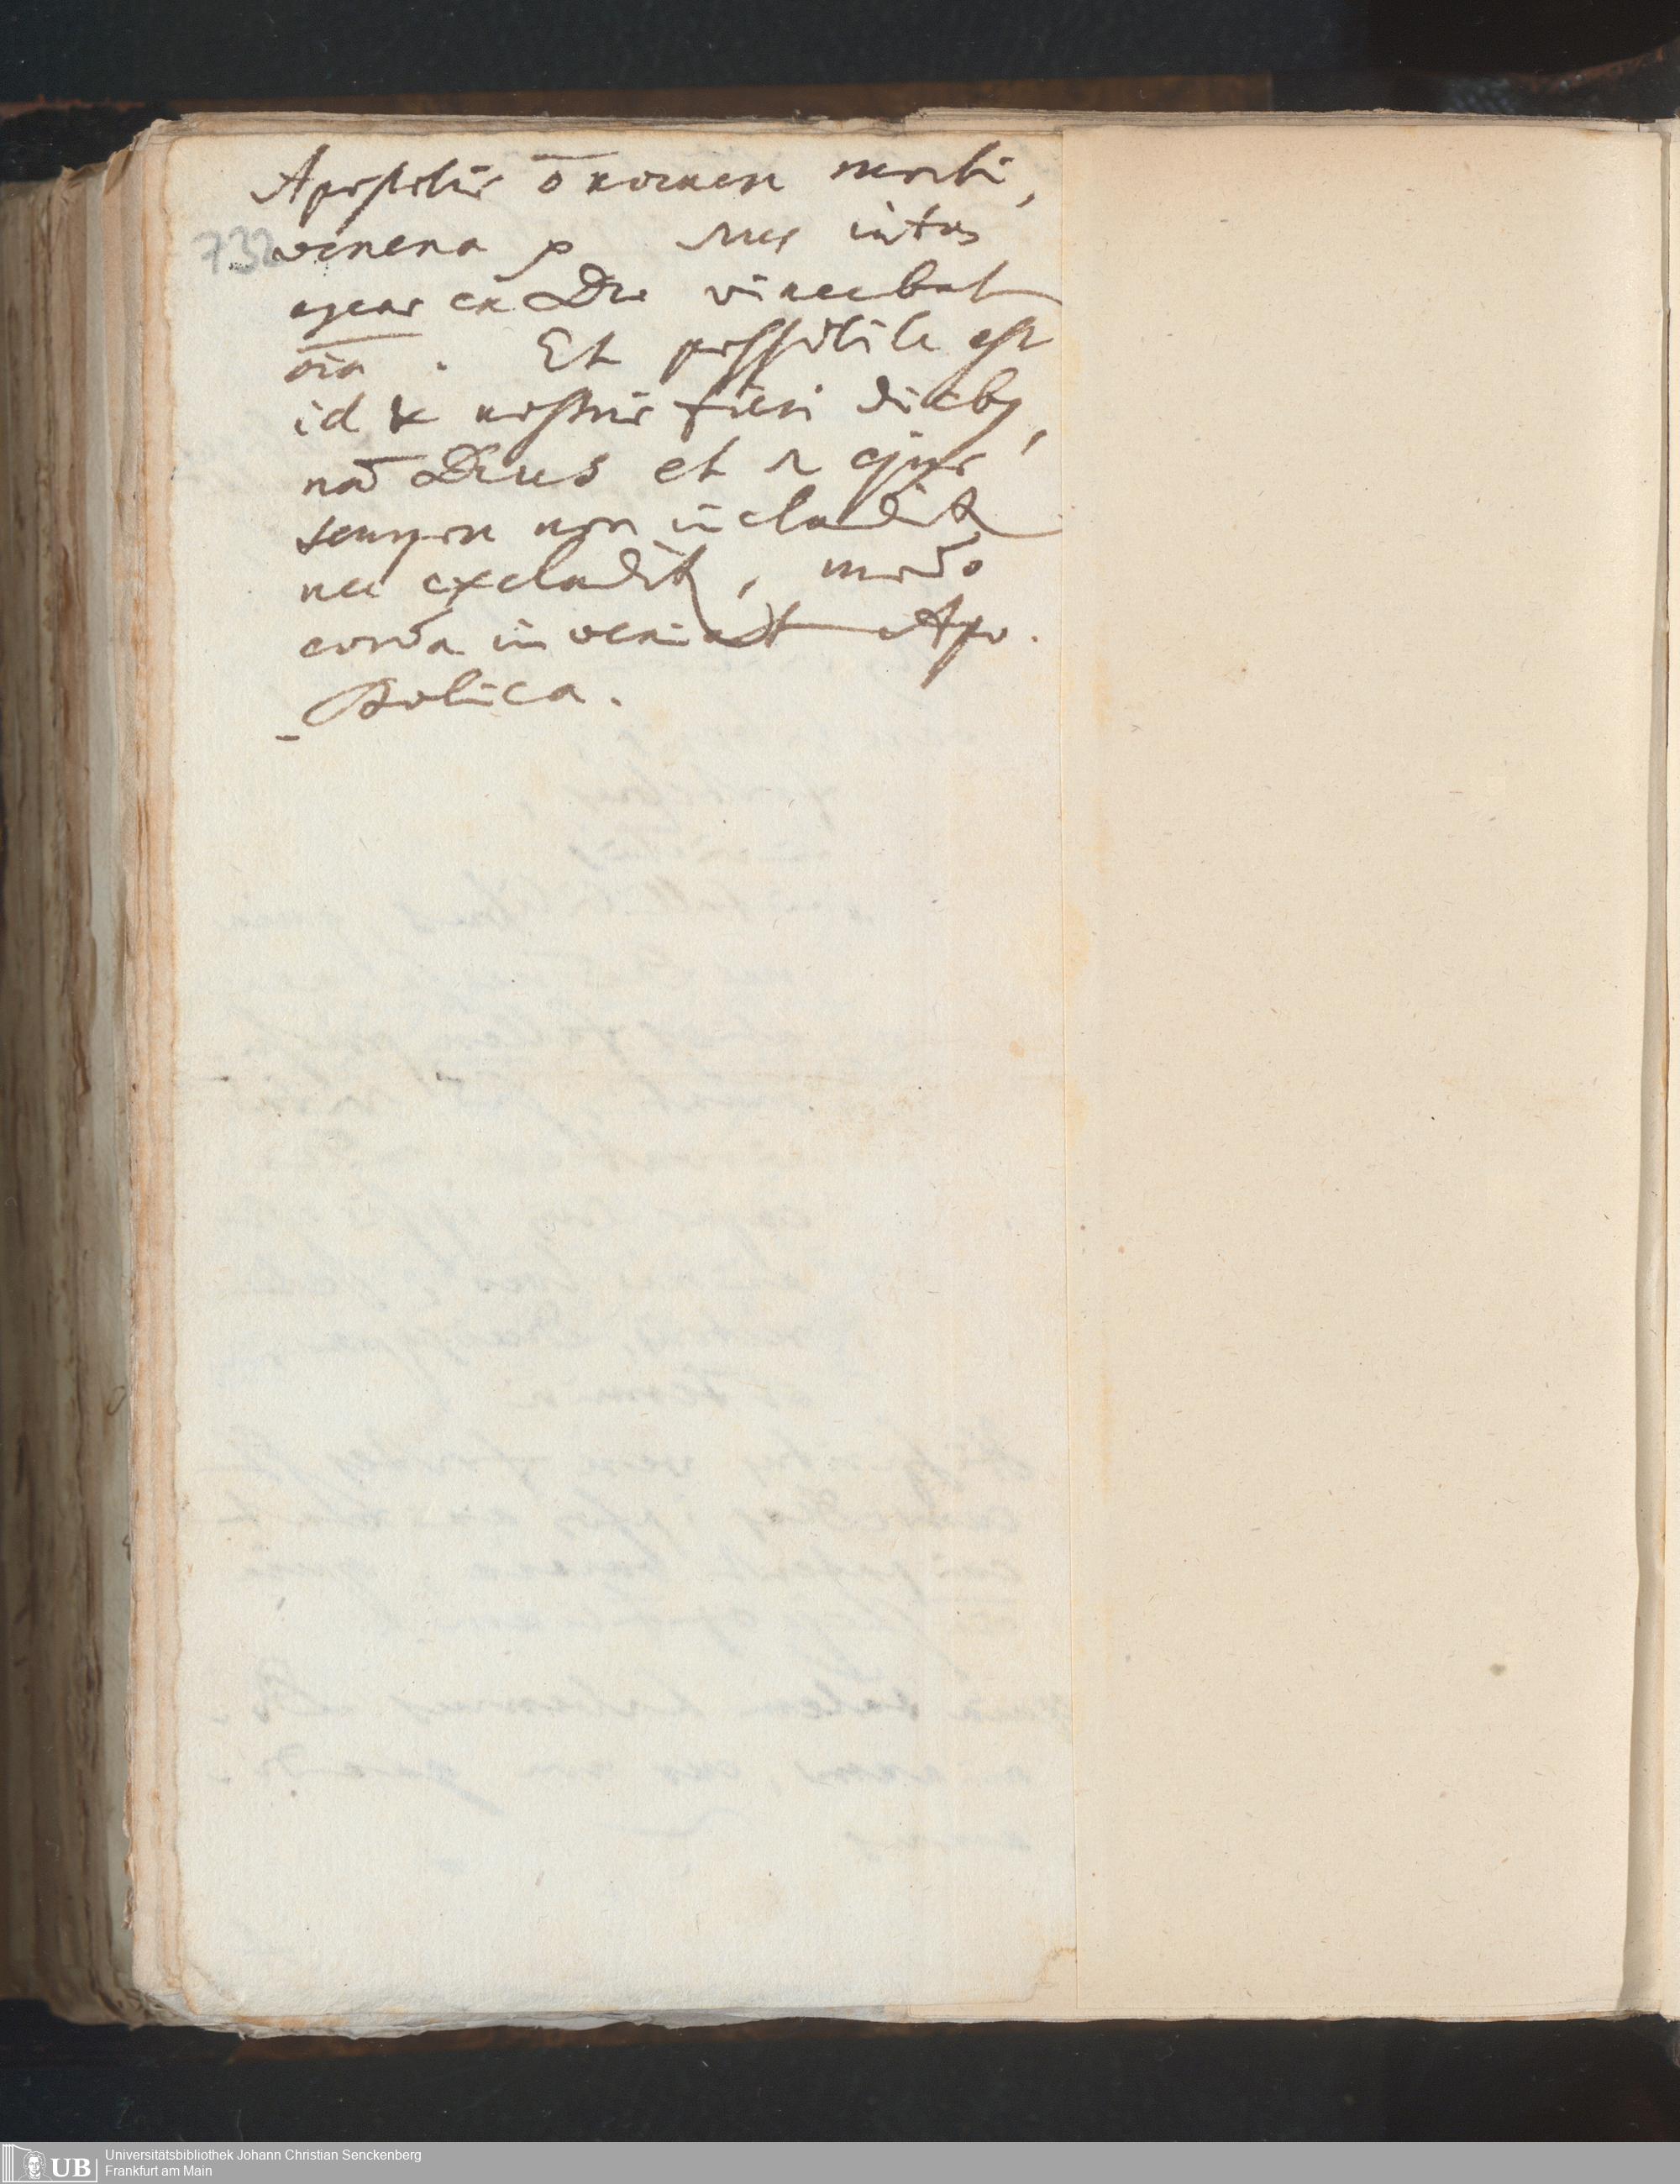 Apostolis õ nocuere morbi,
732
venena p Nus intus
agens ex Deo vincebat
oia. Et possibile est
id & nostris fieri dieb9,
nā Deus et r ejus
tempore non includit
nec excludit, modo
corda inveniat Apo.
-stolica.
UB Universitätsbibliothek Johann Christian Senckenberg
Frankfurt am Main